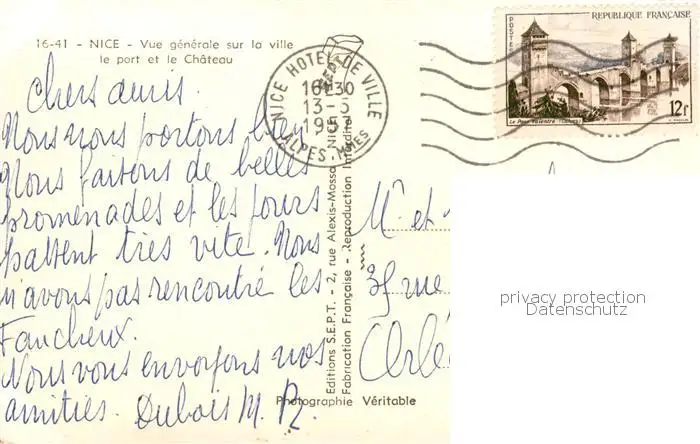 16-41 - NICE - Vue générale sur la ville
le port et le Château
chers amis.
Nous nous portons bien
Nous faisons de belles
promenades et les jours
passent très vite. Nous
n'avons pas rencontré les
Faucheux.
Nous vous envoyons nos
amitiés. Dubois M. R.
NICE HOTEL DE VILLE
16H30
13-5
19
ALPES-MMES
REPUBLIQUE FRANÇAISE
POSTES
12F
Le Pont Valentré (Cahors)
Editions S.E.P.T. - 2, rue Alexis-Mossa - NICE
Fabrication Française - Reproduction Interdite
Photographie Véritable
Mr et
35 rue
Orlé
privacy protection
Datenschutz